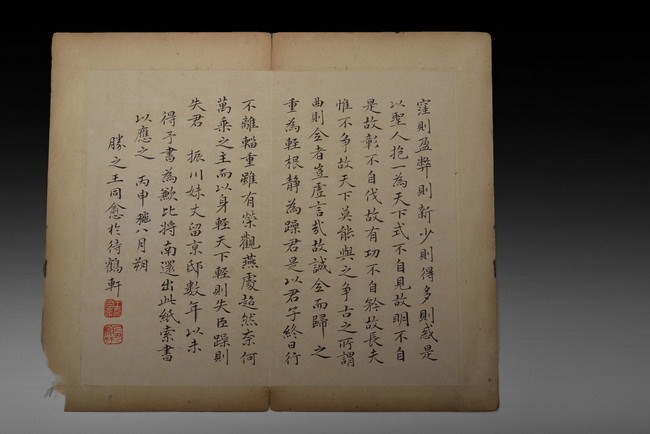 窪則盈弊則新少則得多則惑是
以聖人抱一為天下式不自見故明不自
是故彰不自伐故有功不自矜故長夫
惟不爭故天下莫能與之爭古之所謂
曲則全者豈虛言哉故誠全而歸之
重為輕根靜為躁君是以君子終日行
不離輜重雖有榮觀燕處超然奈何
萬乘之主而以身輕天下輕則失臣躁則
失君 振川妹丈留京邸數年以未
得予書為歉比將南還出此紙索書
以應之 丙申 八月朔
勝之王同愈於待鶴軒